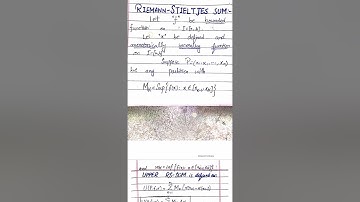 RIEMANN-STIELTJES SUM-
Let "f" be bounded
function on I=[a,b]
Let "α" be defined and
monotonically increasing function
on I=[a,b]
Suppose P={x₀,x₁,...,xₙ}
be any partition with
Mₖ=Sup{f(x): x∈[xₖ₋₁,xₖ]}
and mₖ=inf{f(x): x∈[xₖ₋₁,xₖ]}
UPPER RS-SUM is defined as: